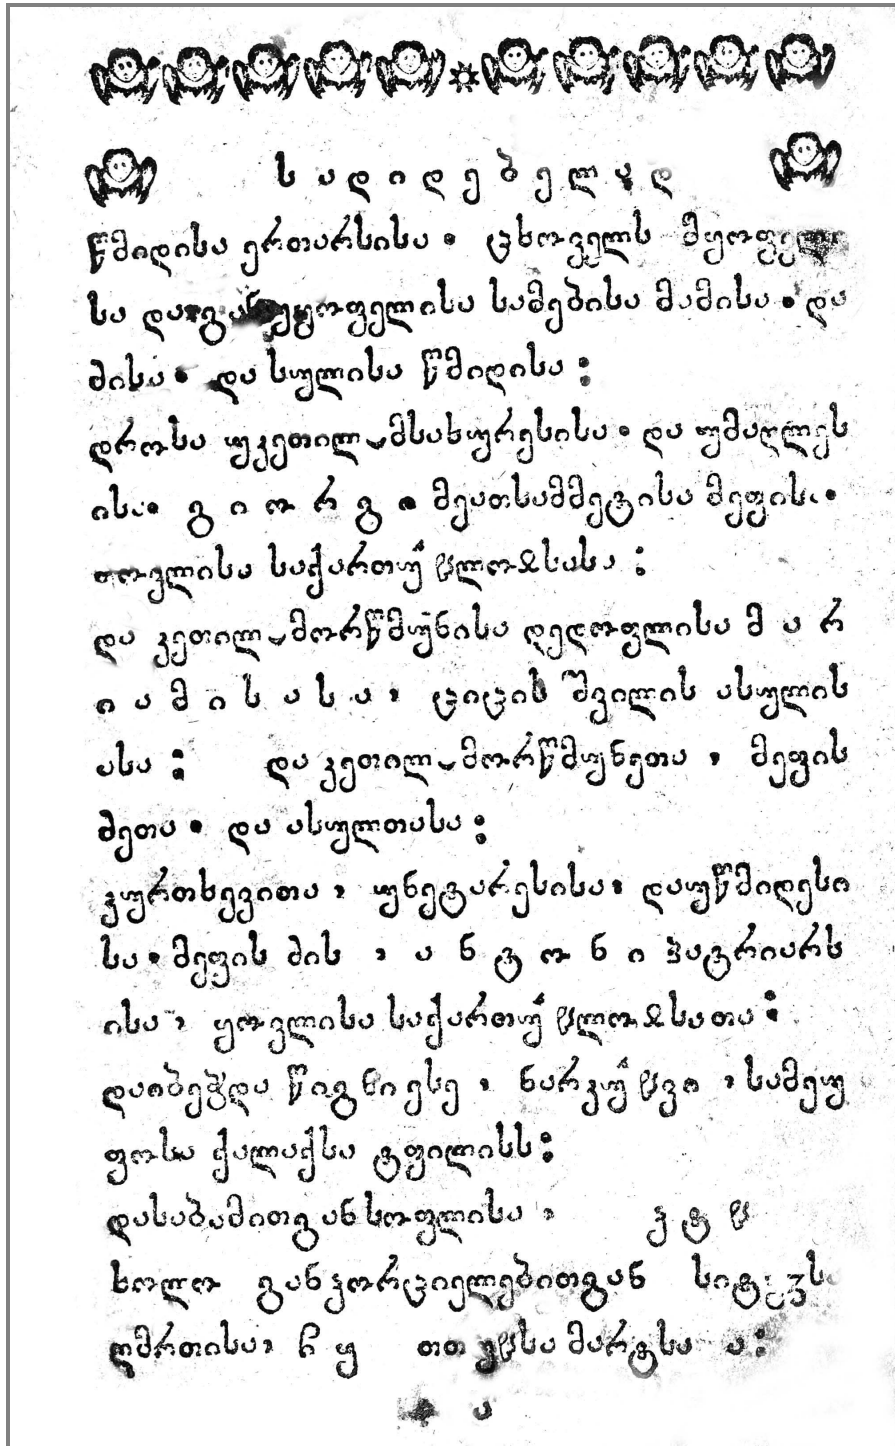 სადიდებელად
წმიდისა ერთარსისა. ცხოველს მყოფელი
სა და განუყოფელისა სამებისა მამისა. და
ძისა. და სულისა წმიდისა:
დროსა უკეთილ‿მსახურესისა. და უმაღლეს
ისა. გიორგ. მეათსამმეტისა მეფისა.
ყოვლისა საქართუჱლოჲსასა:
და კეთილ‿მორწმუნისა დედოფლისა მარ
იამისასა, ციცის შვილის ასულის
ასა: და კეთილ‿მორწმუნეთა, მეფის
ძეთა. და ასულთასა:
კურთხევითა, უნეტარესისა. და უწმიდესი
სა. მეფის ძის, ანტონი პატრიარს
ისა, ყოვლისა საქართუჱლოჲსათა:
დაიბეჭდა წიგნი ესე, ნარკუჱვი, სამეუ
ფოსა ქალაქსა ტფილისს:
დასაბამითგან სოფლისა, ჴტჱ
ხოლო განკორციელებითგან სიტყვს
ღმრთისა, ჩყ თთვჱსა მარტსა ა:
ა